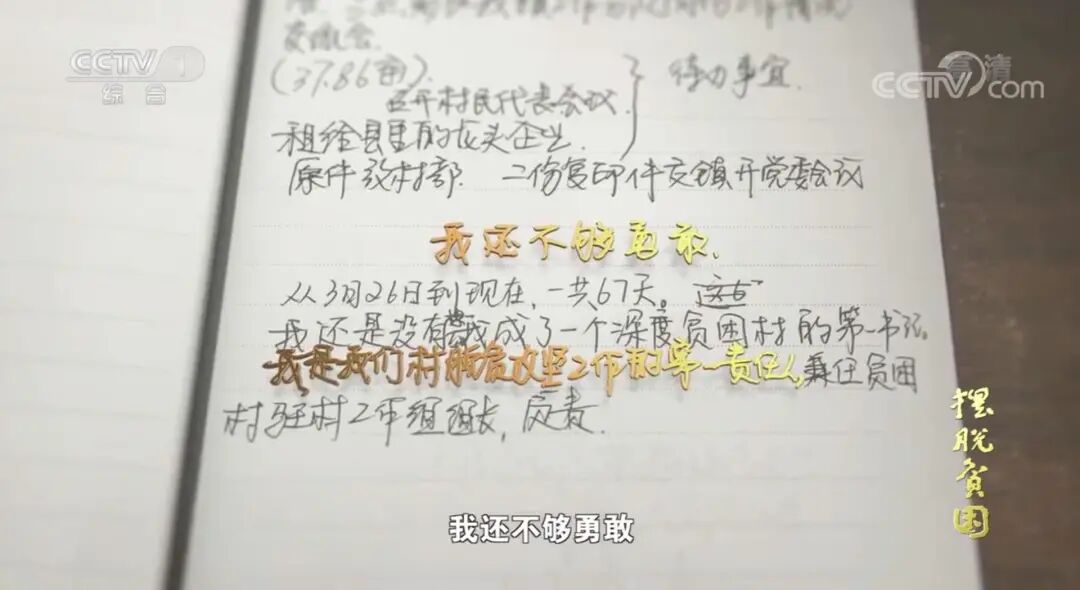 CCTV 1
综合
高清
CCTV.com
交流会.
(37.86亩).
召开村民代表会议.
待办事宜.
租给县里的龙头企业.
原件致村部. 二份复印件交镇开党委会议
我还不够勇敢.
从3月26日到现在,一共67天。这与
我还是没有 我成了一个深度贫困村的第一书记。
我是我们村脱贫攻坚工作的第一责任人,兼任贫困
村驻村工作组组长,负责.
摆脱贫困
我还不够勇敢